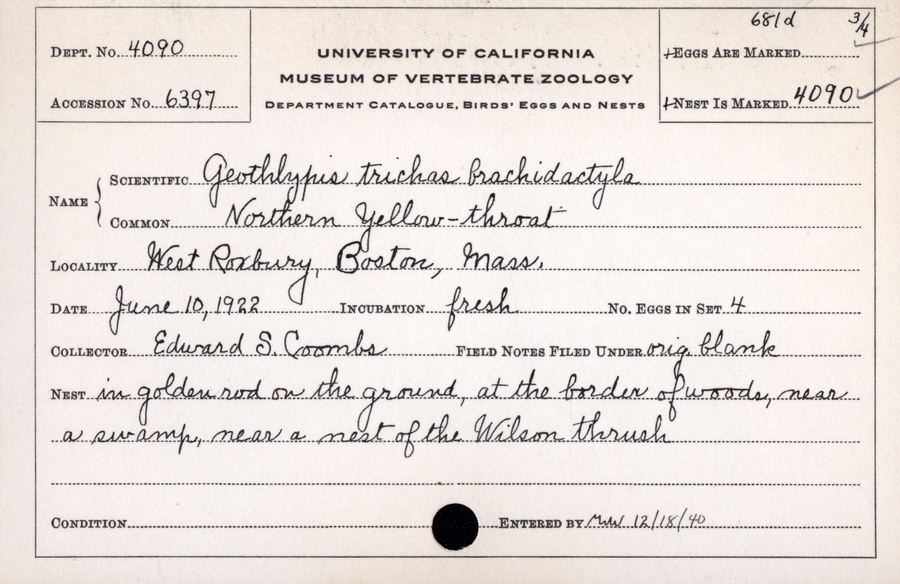 681d 3/4
DEPT. NO. 4090
UNIVERSITY OF CALIFORNIA
EGGS ARE MARKED
MUSEUM OF VERTEBRATE ZOOLOGY
ACCESSION NO. 6397
DEPARTMENT CATALOGUE, BIRDS' EGGS AND NESTS
NEST IS MARKED 4090
NAME
SCIENTIFIC Geothlypis trichas brachidactyla
COMMON Northern Yellow-throat
LOCALITY West Roxbury, Boston, Mass.
DATE June 10, 1922 INCUBATION fresh NO. EGGS IN SET 4
COLLECTOR Edward S. Coombs FIELD NOTES FILED UNDER orig. blank
NEST in goldenrod on the ground, at the border of woods, near
a swamp, near a nest of the Wilson thrush
CONDITION ENTERED BY MW 12/18/40